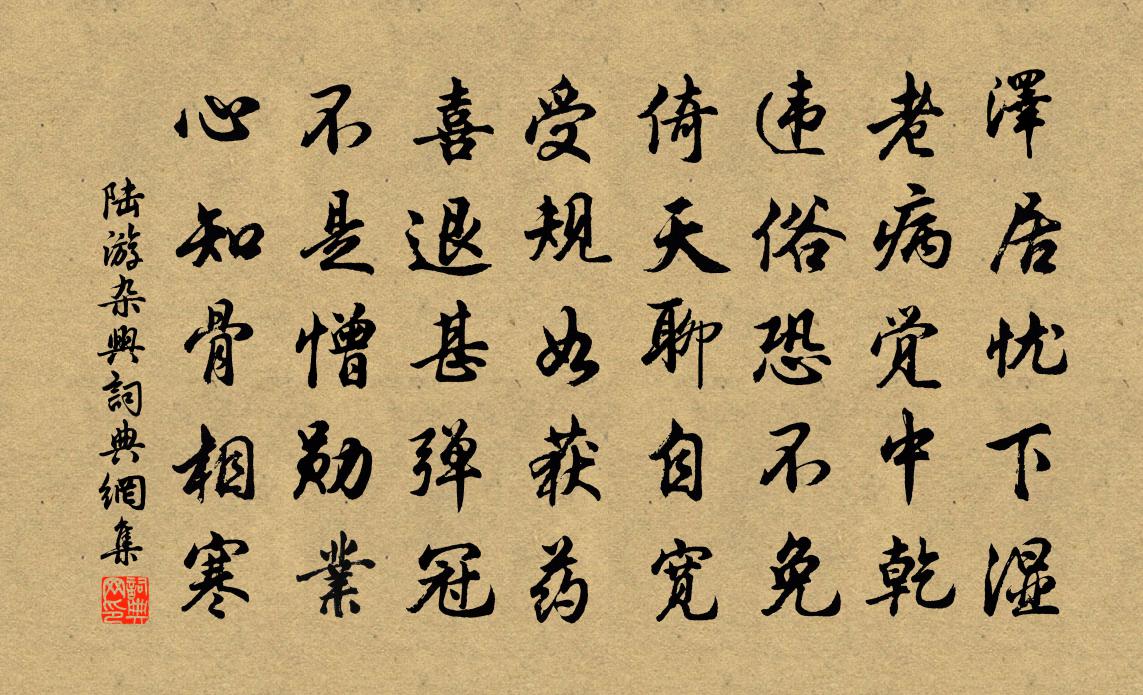 澤居忧下湿
老病觉中乾
违俗恐不免
倚天聊自宽
受规如获药
喜退甚弹冠
不是憎勋業
心知骨相寒
陆游杂興詞典網集
詞典网印